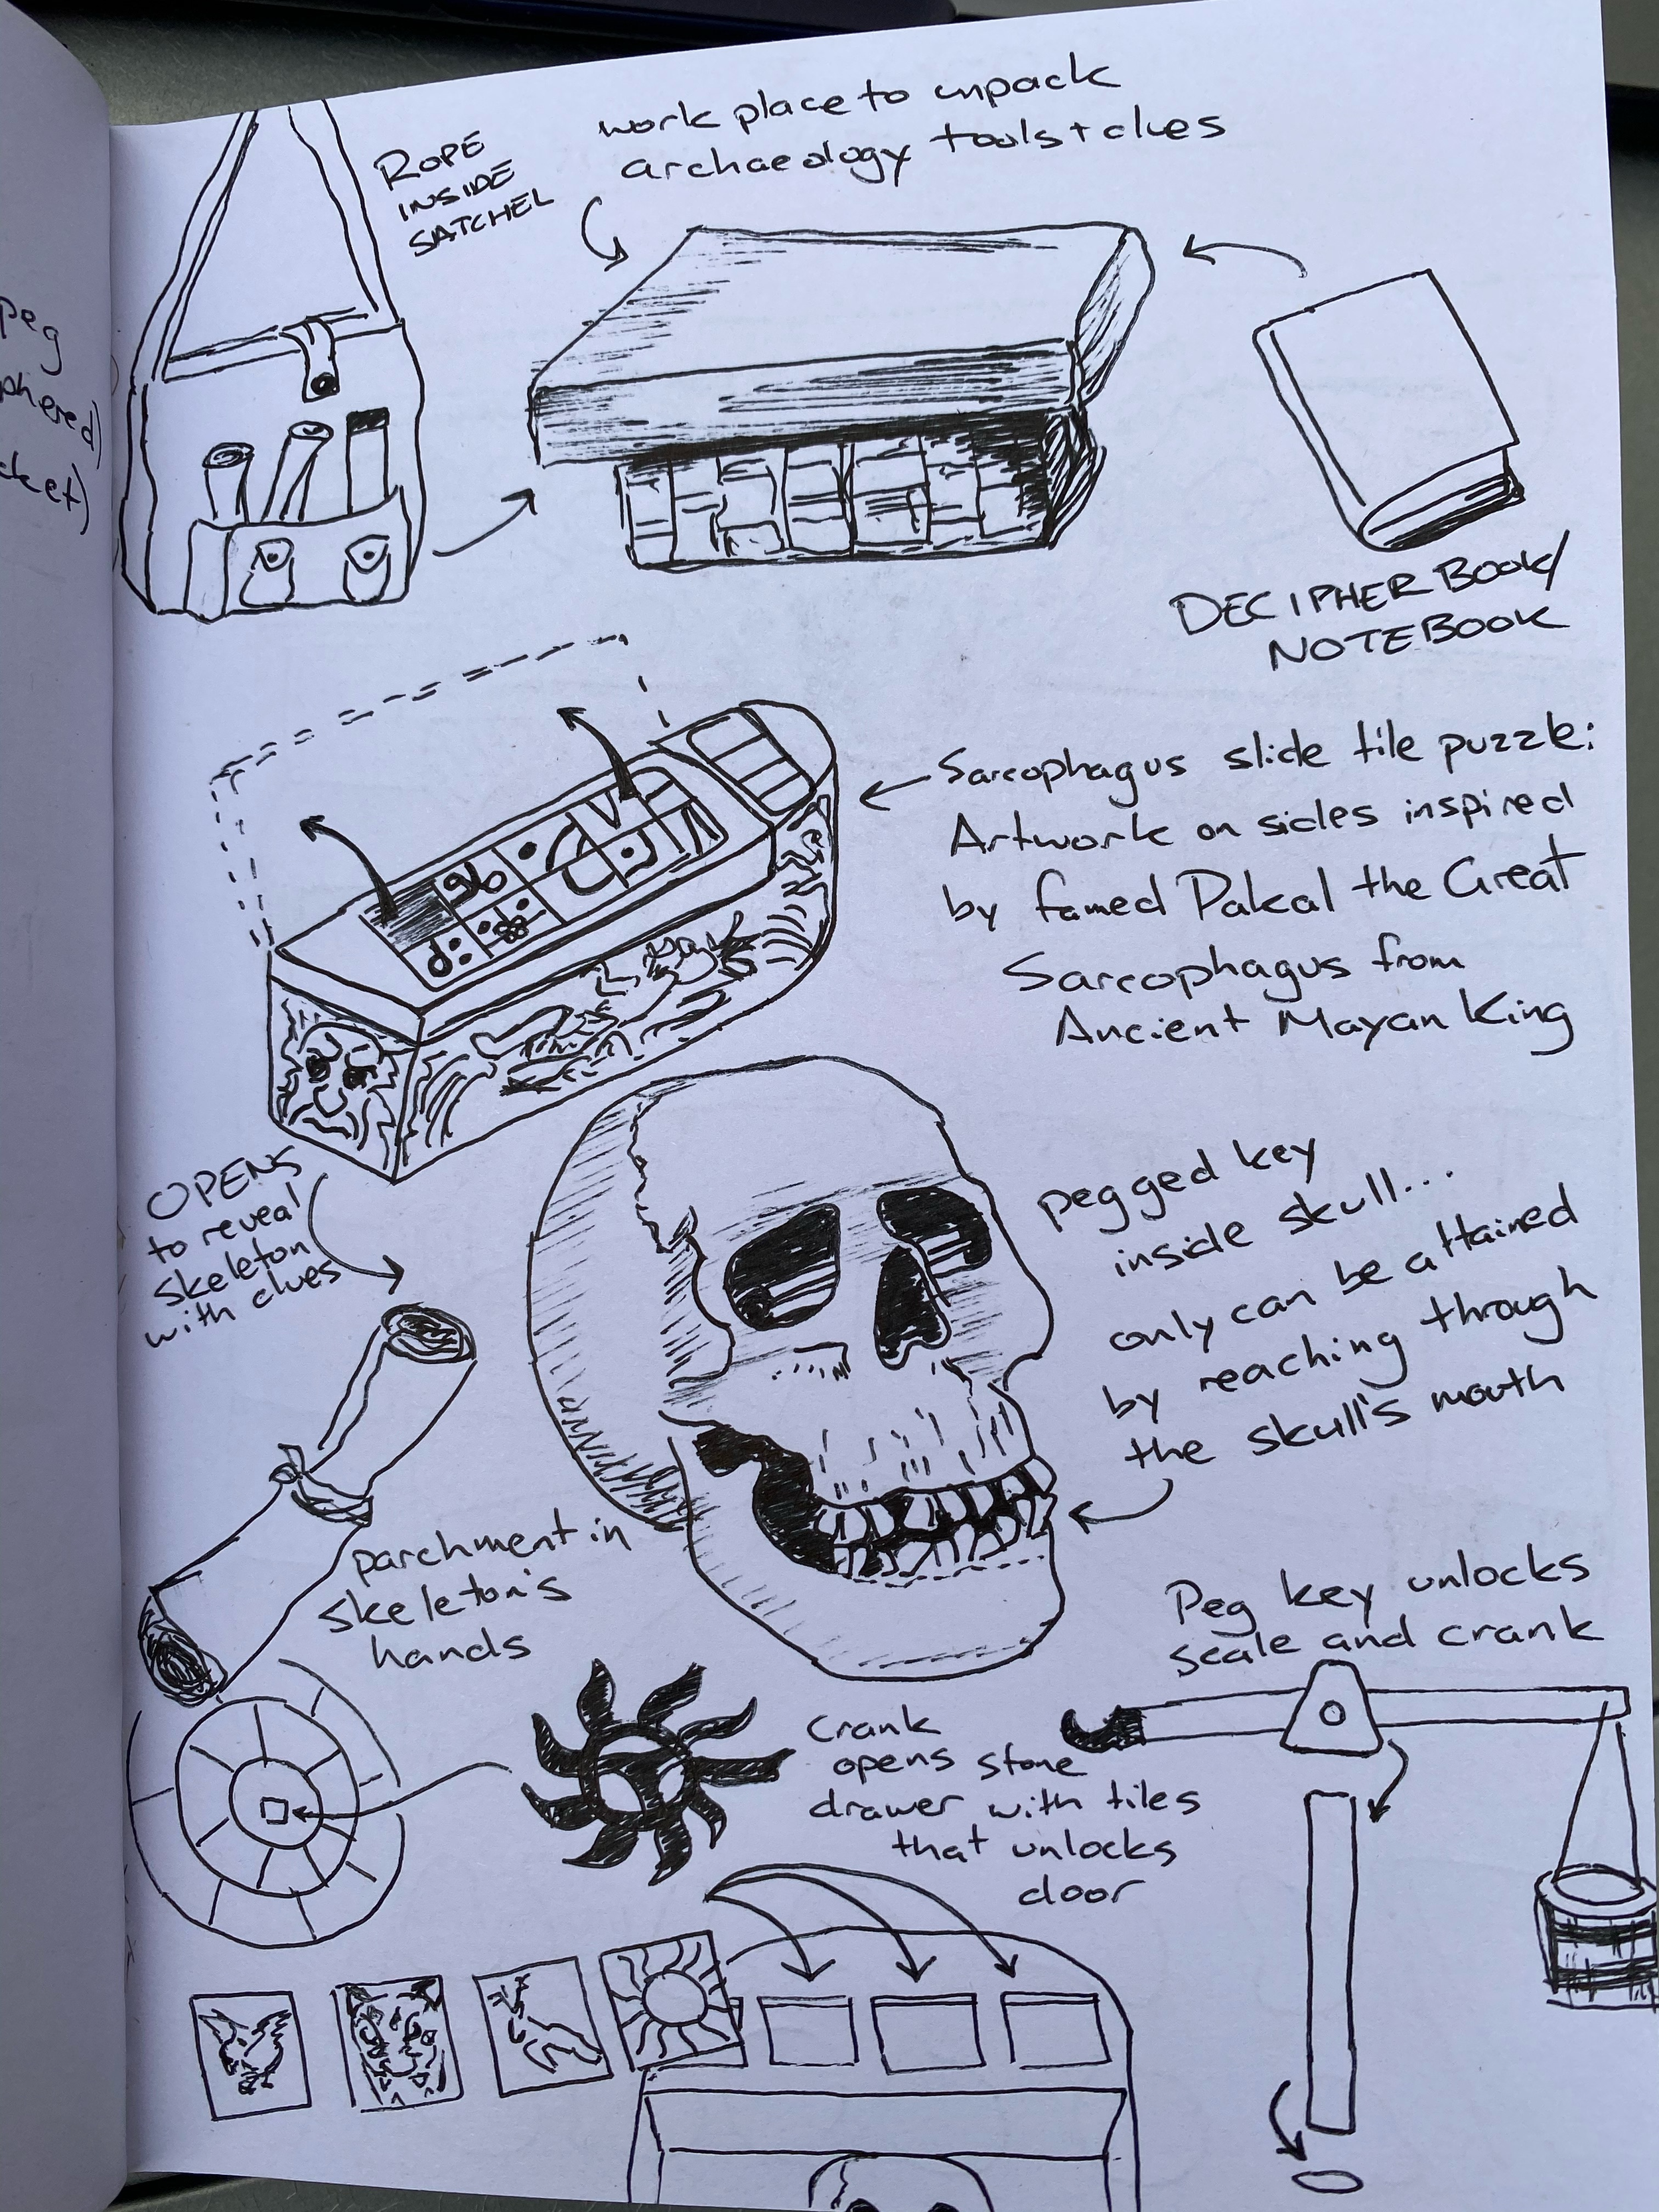 peg
ROPE
INSIDE
SATCHEL
work place to unpack
archaeology tools + clues
DECIPHER BOOK/
NOTEBOOK
Sarcophagus slide tile puzzle:
Artwork on sides inspired
by famed Pakal the Great
Sarcophagus from
Ancient Mayan King
OPENS
to reveal
skeleton
with clues
pegged key
inside skull...
only can be attained
by reaching through
the skull's mouth
parchment in
skeleton's
hands
Peg key unlocks
scale and crank
Crank
opens stone
drawer with tiles
that unlocks
door